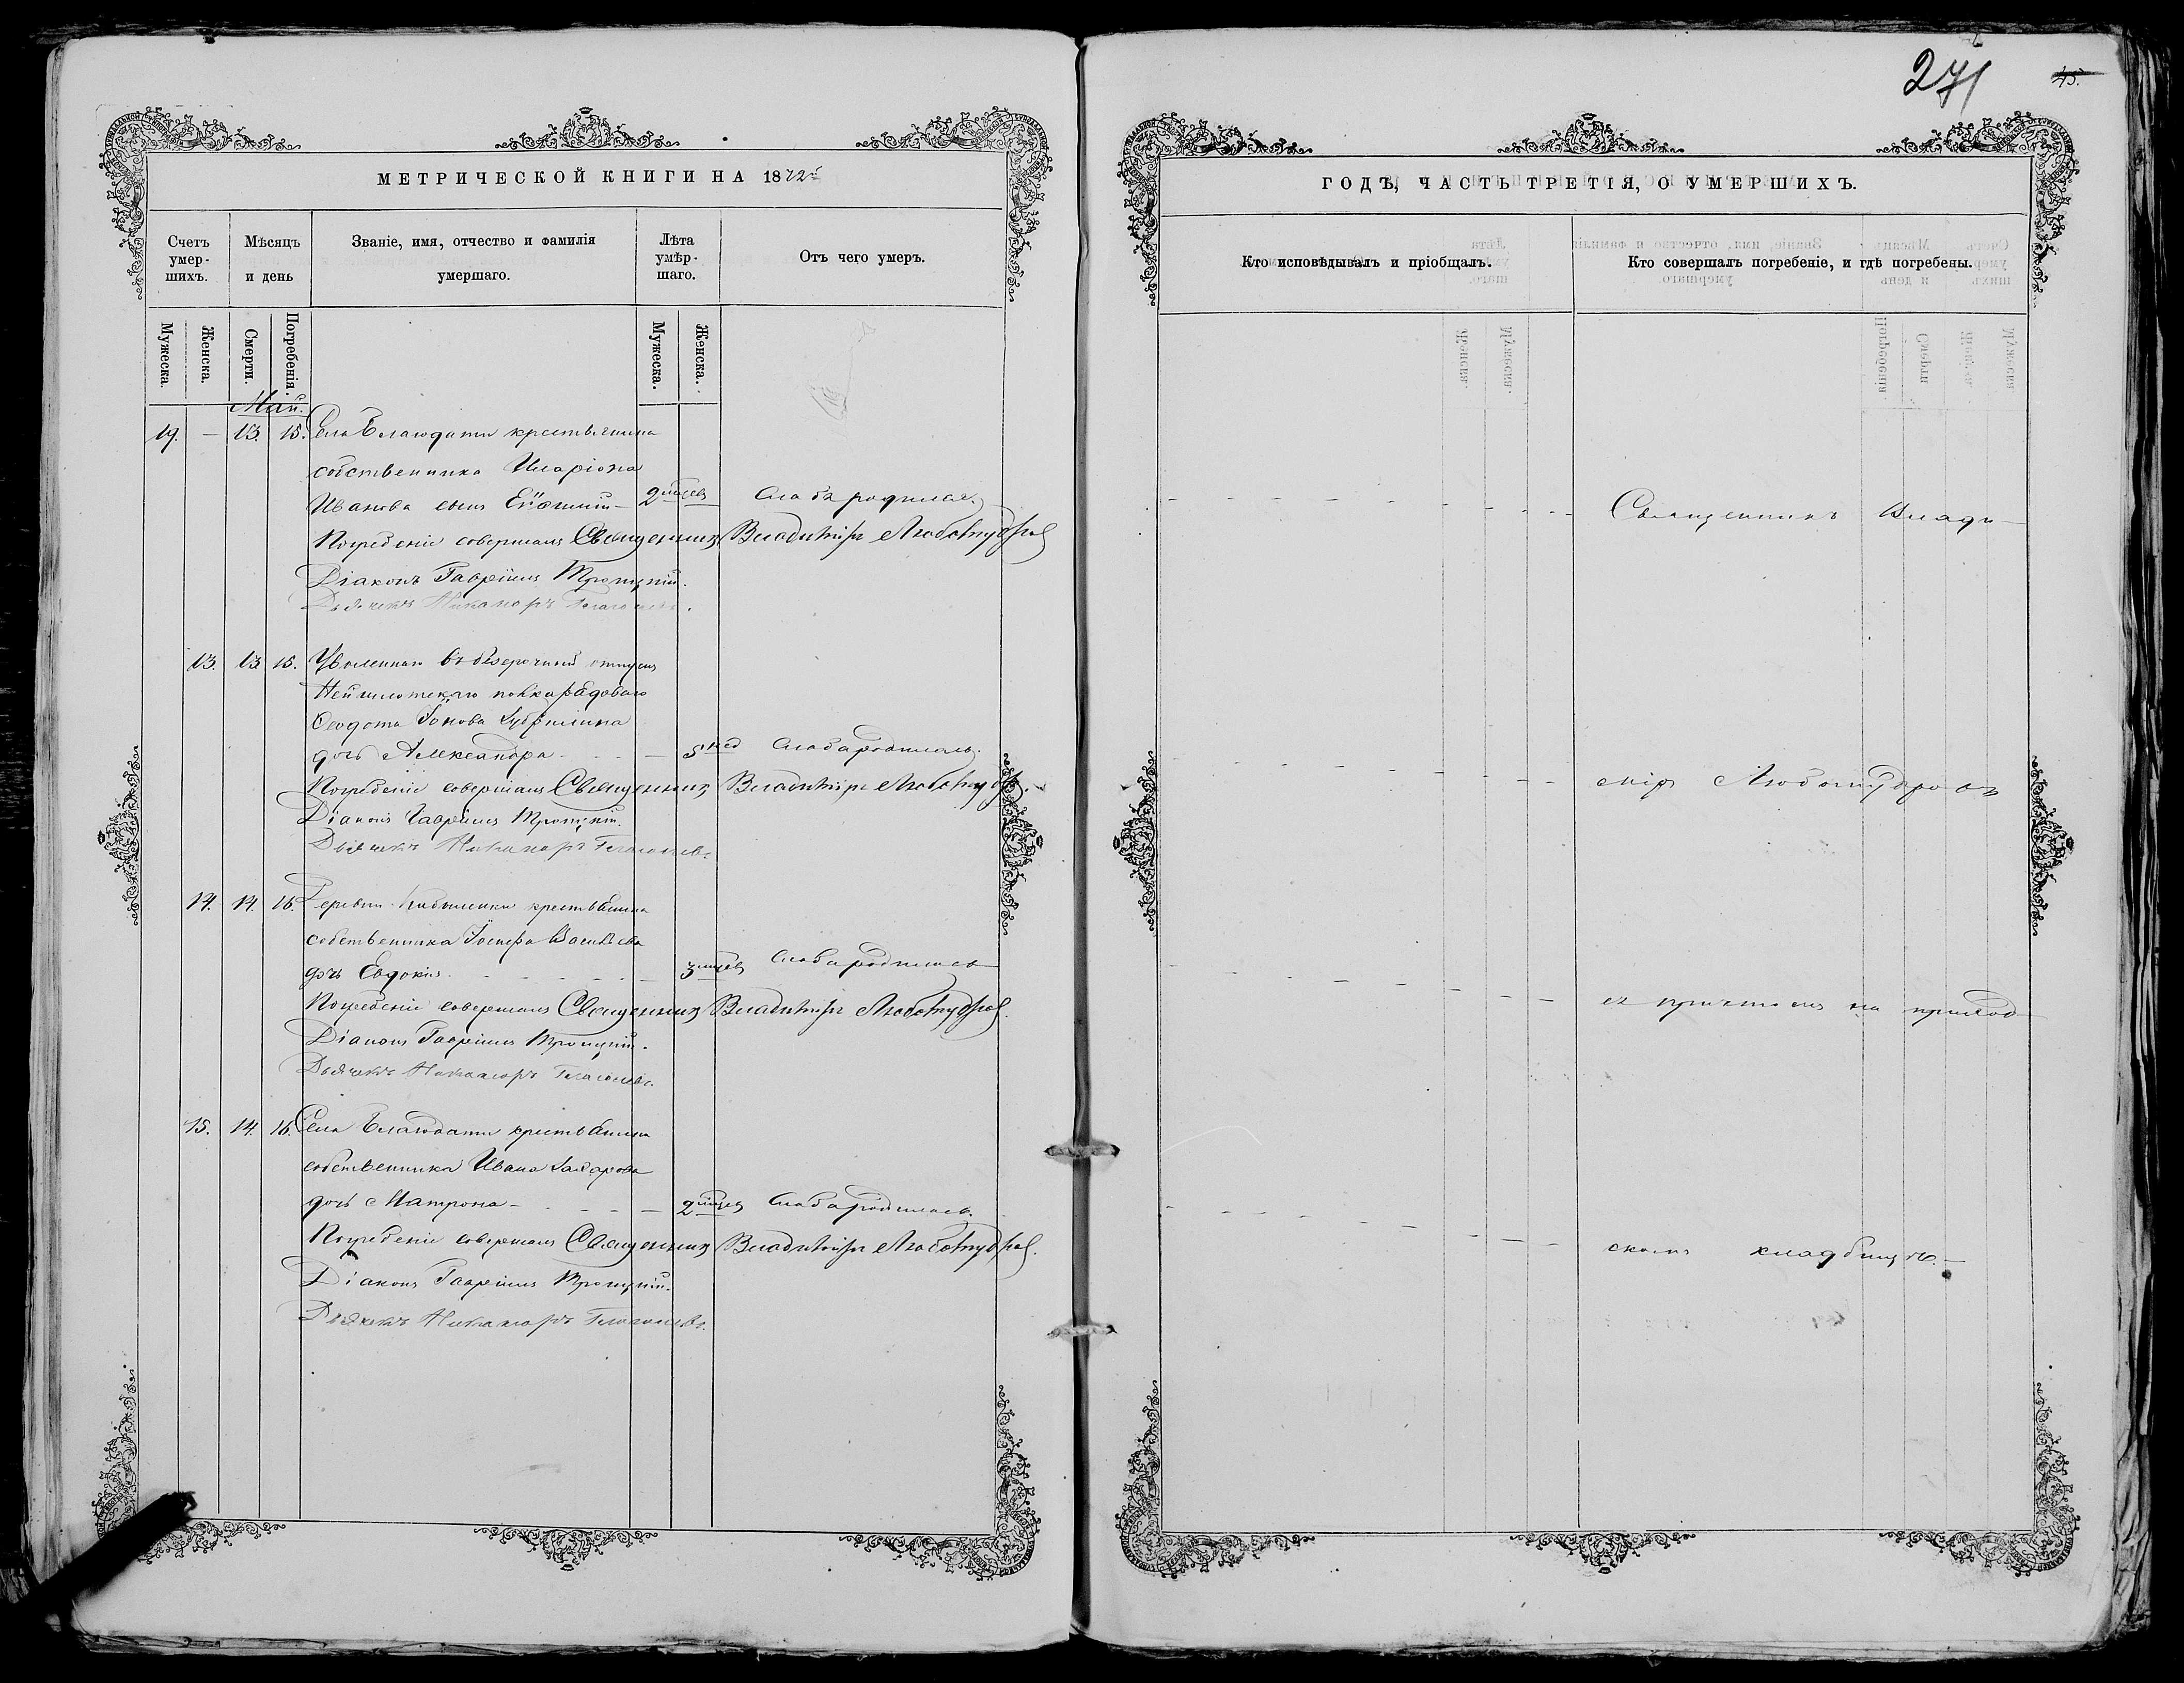 271
45.
МЕТРИЧЕСКОЙ КНИГИ НА 1872й
Счетъ умер-шихъ.
Мѣсяцъ и день
Званіе, имя, отчество и фамилія умершаго.
Лѣта умѣр-шаго.
Отъ чего умеръ.
Мужеска.
Женска.
Смерти.
Погребенія
Мужеска.
Женска.
Май.
19. — 13. 15. Села Благодати крестьянина
собственника Иларіона
Иванова сынъ — 2 мѣсяц Слабъ родился.
Погребеніе совершалъ Священникъ Владиміръ Любомудровъ
Діаконъ Гавріилъ Троицкій.
Дьячекъ Никаноръ
13. 13. 15. Уволеннаго въ безсрочный отпускъ
Нейшлотскаго полка рядоваго
Ѳеодота Іонова
дочь Александра — 5 нед Слаба родилась.
Погребеніе совершалъ Священникъ Владиміръ Любомудровъ.
Діаконъ Гавріилъ Троицкій.
Дьячекъ Никаноръ
14. 14. 16. Деревни крестьянина
собственника Іосифа Васильева
дочь Евдокія — 3 мѣсяц Слаба родилась
Погребеніе совершалъ Священникъ Владиміръ Любомудровъ.
Діаконъ Гавріилъ Троицкій.
Дьячекъ Никаноръ
15. 14. 16. Села Благодати крестьянина
собственника Ивана Захарова
дочь Матрона — 2 мѣсяц Слаба родилась.
Погребеніе совершалъ Священникъ Владиміръ Любомудровъ.
Діаконъ Гавріилъ Троицкій.
Дьячекъ Никаноръ
ГОДЪ, ЧАСТЬ ТРЕТІЯ, О УМЕРШИХЪ.
Кто исповѣдывалъ и пріобщалъ.
Кто совершалъ погребеніе, и гдѣ погребены.
Священникъ Влади-
міръ Любомудровъ
съ причтомъ на приход-
скомъ кладбищѣ. —